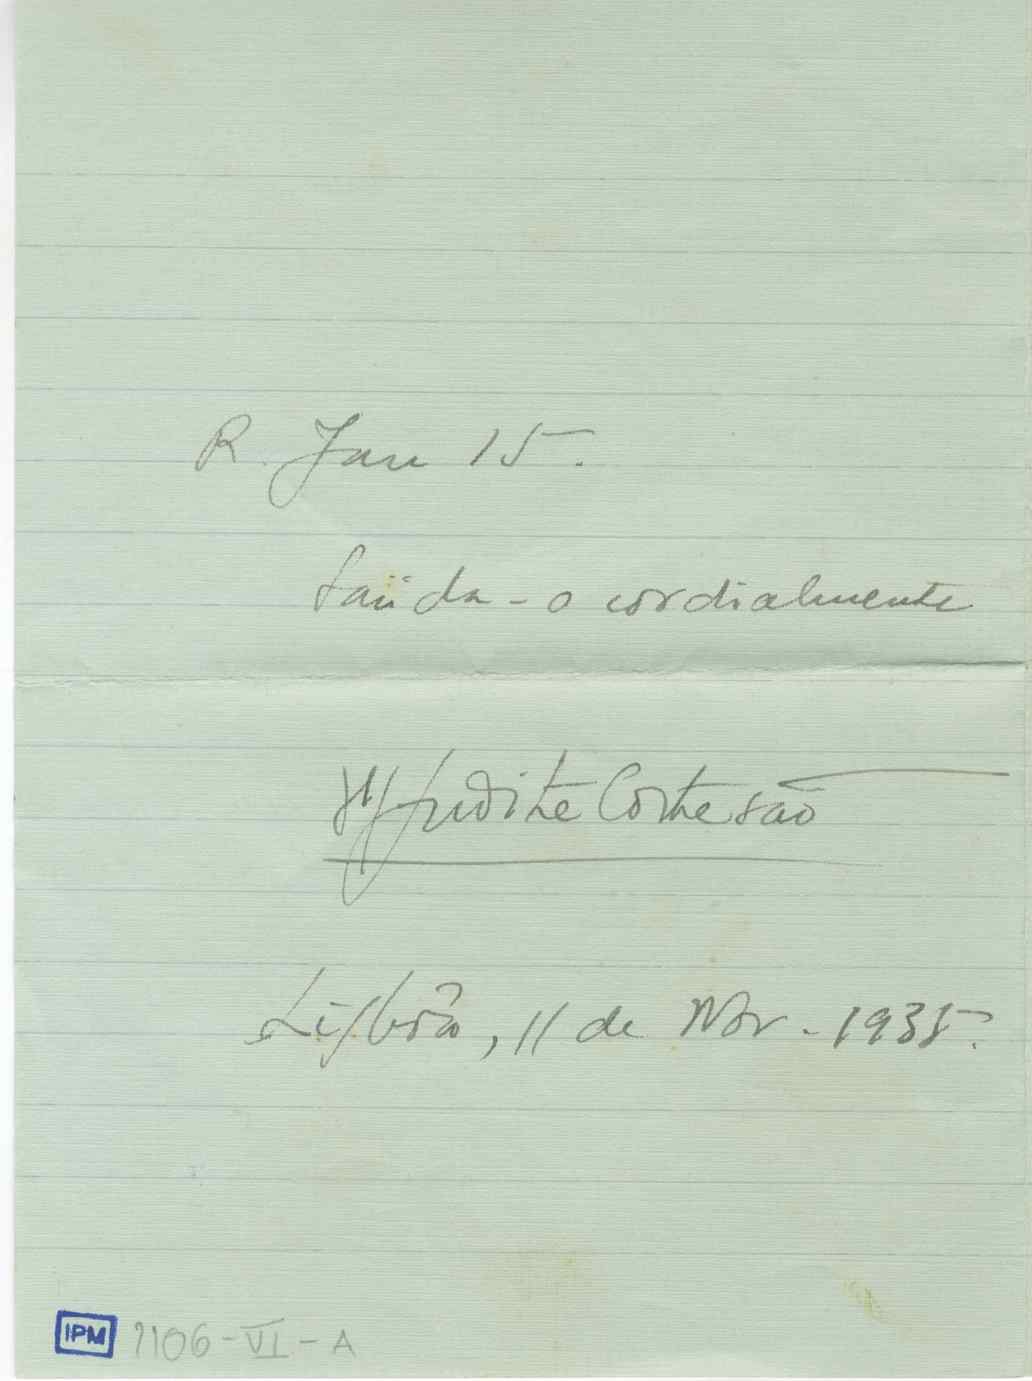 R. Jau 15.
Saüda-o cordialmente
Mª Judite Cortesão
Lisbôa, 11 de Nov. 1935.
IPM 1106-VI-A